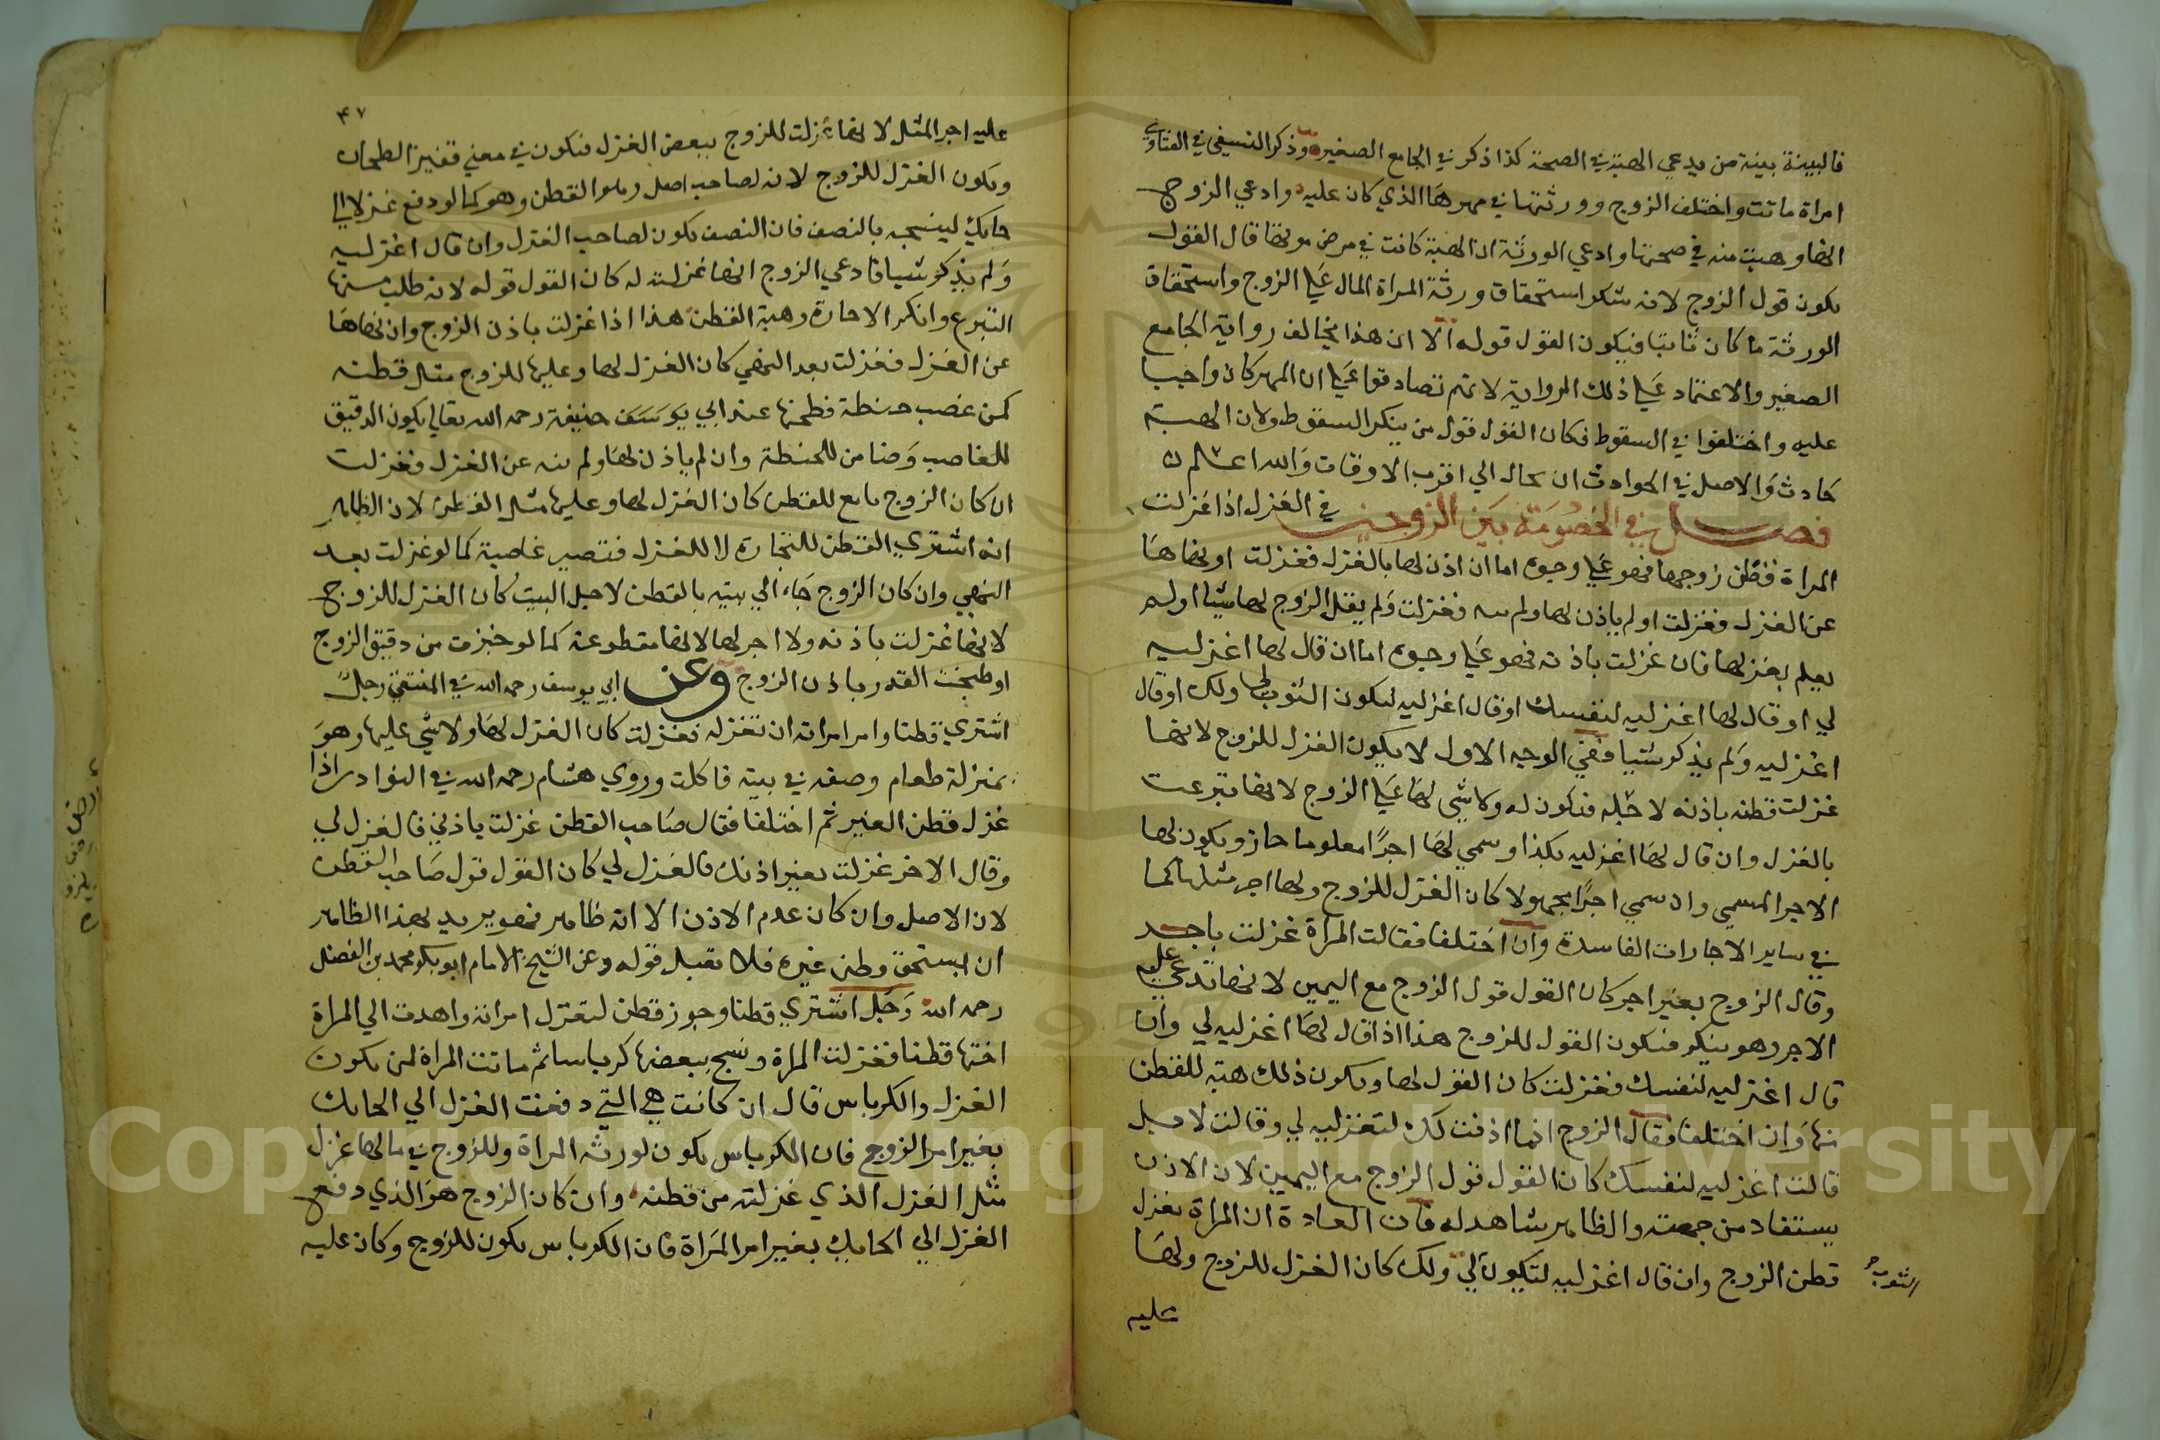 فالبينة بينة من يدعي الهبة في الصحة كذا ذكر في الجامع الصغير وذكر النسفي في الفتاوي
امراة ماتت واختلف الزوج وورثتها في مهرها الذي كان عليه وادعي الزوج
انها وهبت منه في صحتها وادعي الورثة ان الهبة كانت في مرض موتها قال القول
يكون قول الزوج لانه ينكر استحقاق ورثة المراة المال علي الزوج واستحقاق
الورثة ما كان ثابتا فيكون القول قوله الا ان هذا يخالف رواية الجامع
الصغير والاعتماد علي ذلك الرواية لانهم تصادقوا علي ان المهر كان واجبا
عليه واختلفوا في السقوط فكان القول قول من ينكر السقوط ولان الهبة
حادث والاصل في الحوادث ان يحال الي اقرب الاوقات والله اعلم
فصل في الخصومة بين الزوجين في الغزل اذا غزلت
المراة قطن زوجها فهو علي وجوه اما ان اذن لها بالغزل فغزلت او نهاها
عن الغزل فغزلت او لم ياذن لها ولم ينه فغزلت ولم يقل الزوج لها شيا او لم
يعلم بغزلها فان غزلت باذنه فهو علي وجوه اما ان قال لها اغزليه
لي او قال لها اغزليه لنفسك او قال اغزليه ليكون الثوب لي ولك او قال
اغزليه ولم يذكر شيا ففي الوجه الاول لا يكون الغزل للزوج لانها
غزلت قطنه باذنه لاجله فتكون له ولا شي لها علي الزوج لانها تبرعت
بالغزل وان قال لها اغزليه بكذا وسمي لها اجرا معلوما جاز ويكون لها
الاجر المسمي وان سمي اجرا مجهولا كان الغزل للزوج ولها اجر مثلها كما
في ساير الاجارات الفاسدة وان اختلفا فقالت المراة غزلت باجر
وقال الزوج بغير اجر كان القول قول الزوج مع اليمين لانها تدعي عليه
الاجر وهو ينكر فتكون القول للزوج هذا اذا قال لها اغزليه لي وان
قال اغزليه لنفسك فغزلت كان الغزل لها ويكون ذلك هبة للقطن
منها وان اختلفا فقال الزوج انما اذنت لك لتغزليه لي وقالت لا بل
قالت اغزليه لنفسك كان القول قول الزوج مع اليمين لان الاذن
يستفاد من جهته والظاهر شاهد له فان العادة ان المراة تغزل
قطن الزوج وان قال اغزليه لتكون لي ولك كان الغزل للزوج ولها
الثوب
عليه
٤٧
عليه اجر المثل لانها غزلت للزوج ببعض الغزل فتكون في معني قفيز الطحان
ويكون الغزل للزوج لانه لصاحب اصل القطن وهو كما لو دفع غزلا الي
حايك لينسجه بالنصف فان النصف يكون لصاحب الغزل وان قال اغزليه
ولم يذكر شيا فادعي الزوج انها غزلته له كان القول قوله لانه طلب منها
التبرع وانكر الاجارة وهبة القطن هذا اذا غزلت باذن الزوج وان نهاها
عن الغزل فغزلت بعد النهي كان الغزل لها وعليها للزوج مثل قطنه
كمن غصب حنطة فطحنها عند ابي يوسف حنيفة رحمه الله تعالي يكون الدقيق
للغاصب وضامن للحنطة وان لم ياذن لها ولم ينه عن الغزل فغزلت
ان كان الزوج بايع للقطن كان الغزل لها وعليها مثل القطن لان الظاهر
انه اشتري القطن للتجارة لا للغزل فتصير غاصبة كما لو غزلت بعد
النهي وان كان الزوج جاء الي بيته بالقطن لاجل البيت كان الغزل للزوج
لانها غزلت باذنه ولا اجر لها لانها متطوعة كما لو خبزت من دقيق الزوج
او طبخت القدر باذن الزوج وعن ابي يوسف رحمه الله في المنتقي رجل
اشتري قطنا وامر امراته ان تغزله فغزلت كان الغزل لها ولا شي عليها وهو
بمنزلة طعام وضعه في بيته فاكلت وروي هشام رحمه الله في النوادر اذا
غزل قطن الغير ثم اختلفا فقال صاحب القطن غزلت باذني فالغزل لي
وقال الاخر غزلت بغير اذنك فالغزل لي كان القول قول صاحب القطن
لان الاصل وان كان عدم الاذن الا انه ظاهر فهو يريد بهذا الظاهر
ان يستحق وطن غيره فلا تقبل قوله وعن الشيخ الامام ابو بكر محمد بن الفضل
رحمه الله رجل اشتري قطنا وجوز قطن لتغزل امراته واهدت الي المراة
اختها قطنا فغزلت المراة ونسج ببعضها كرباسا ثم ماتت المراة لمن يكون
الغزل والكرباس قال ان كانت هي التي دفعت الغزل الي الحايك
بغير امر الزوج فان الكرباس يكون لورثة المراة وللزوج في مالها غزل
مثل الغزل الذي غزلته من قطنه وان كان الزوج هو الذي دفع
الغزل الي الحايك بغير امر المراة فان الكرباس يكون للزوج وكان عليه
Copyright © King Saud University